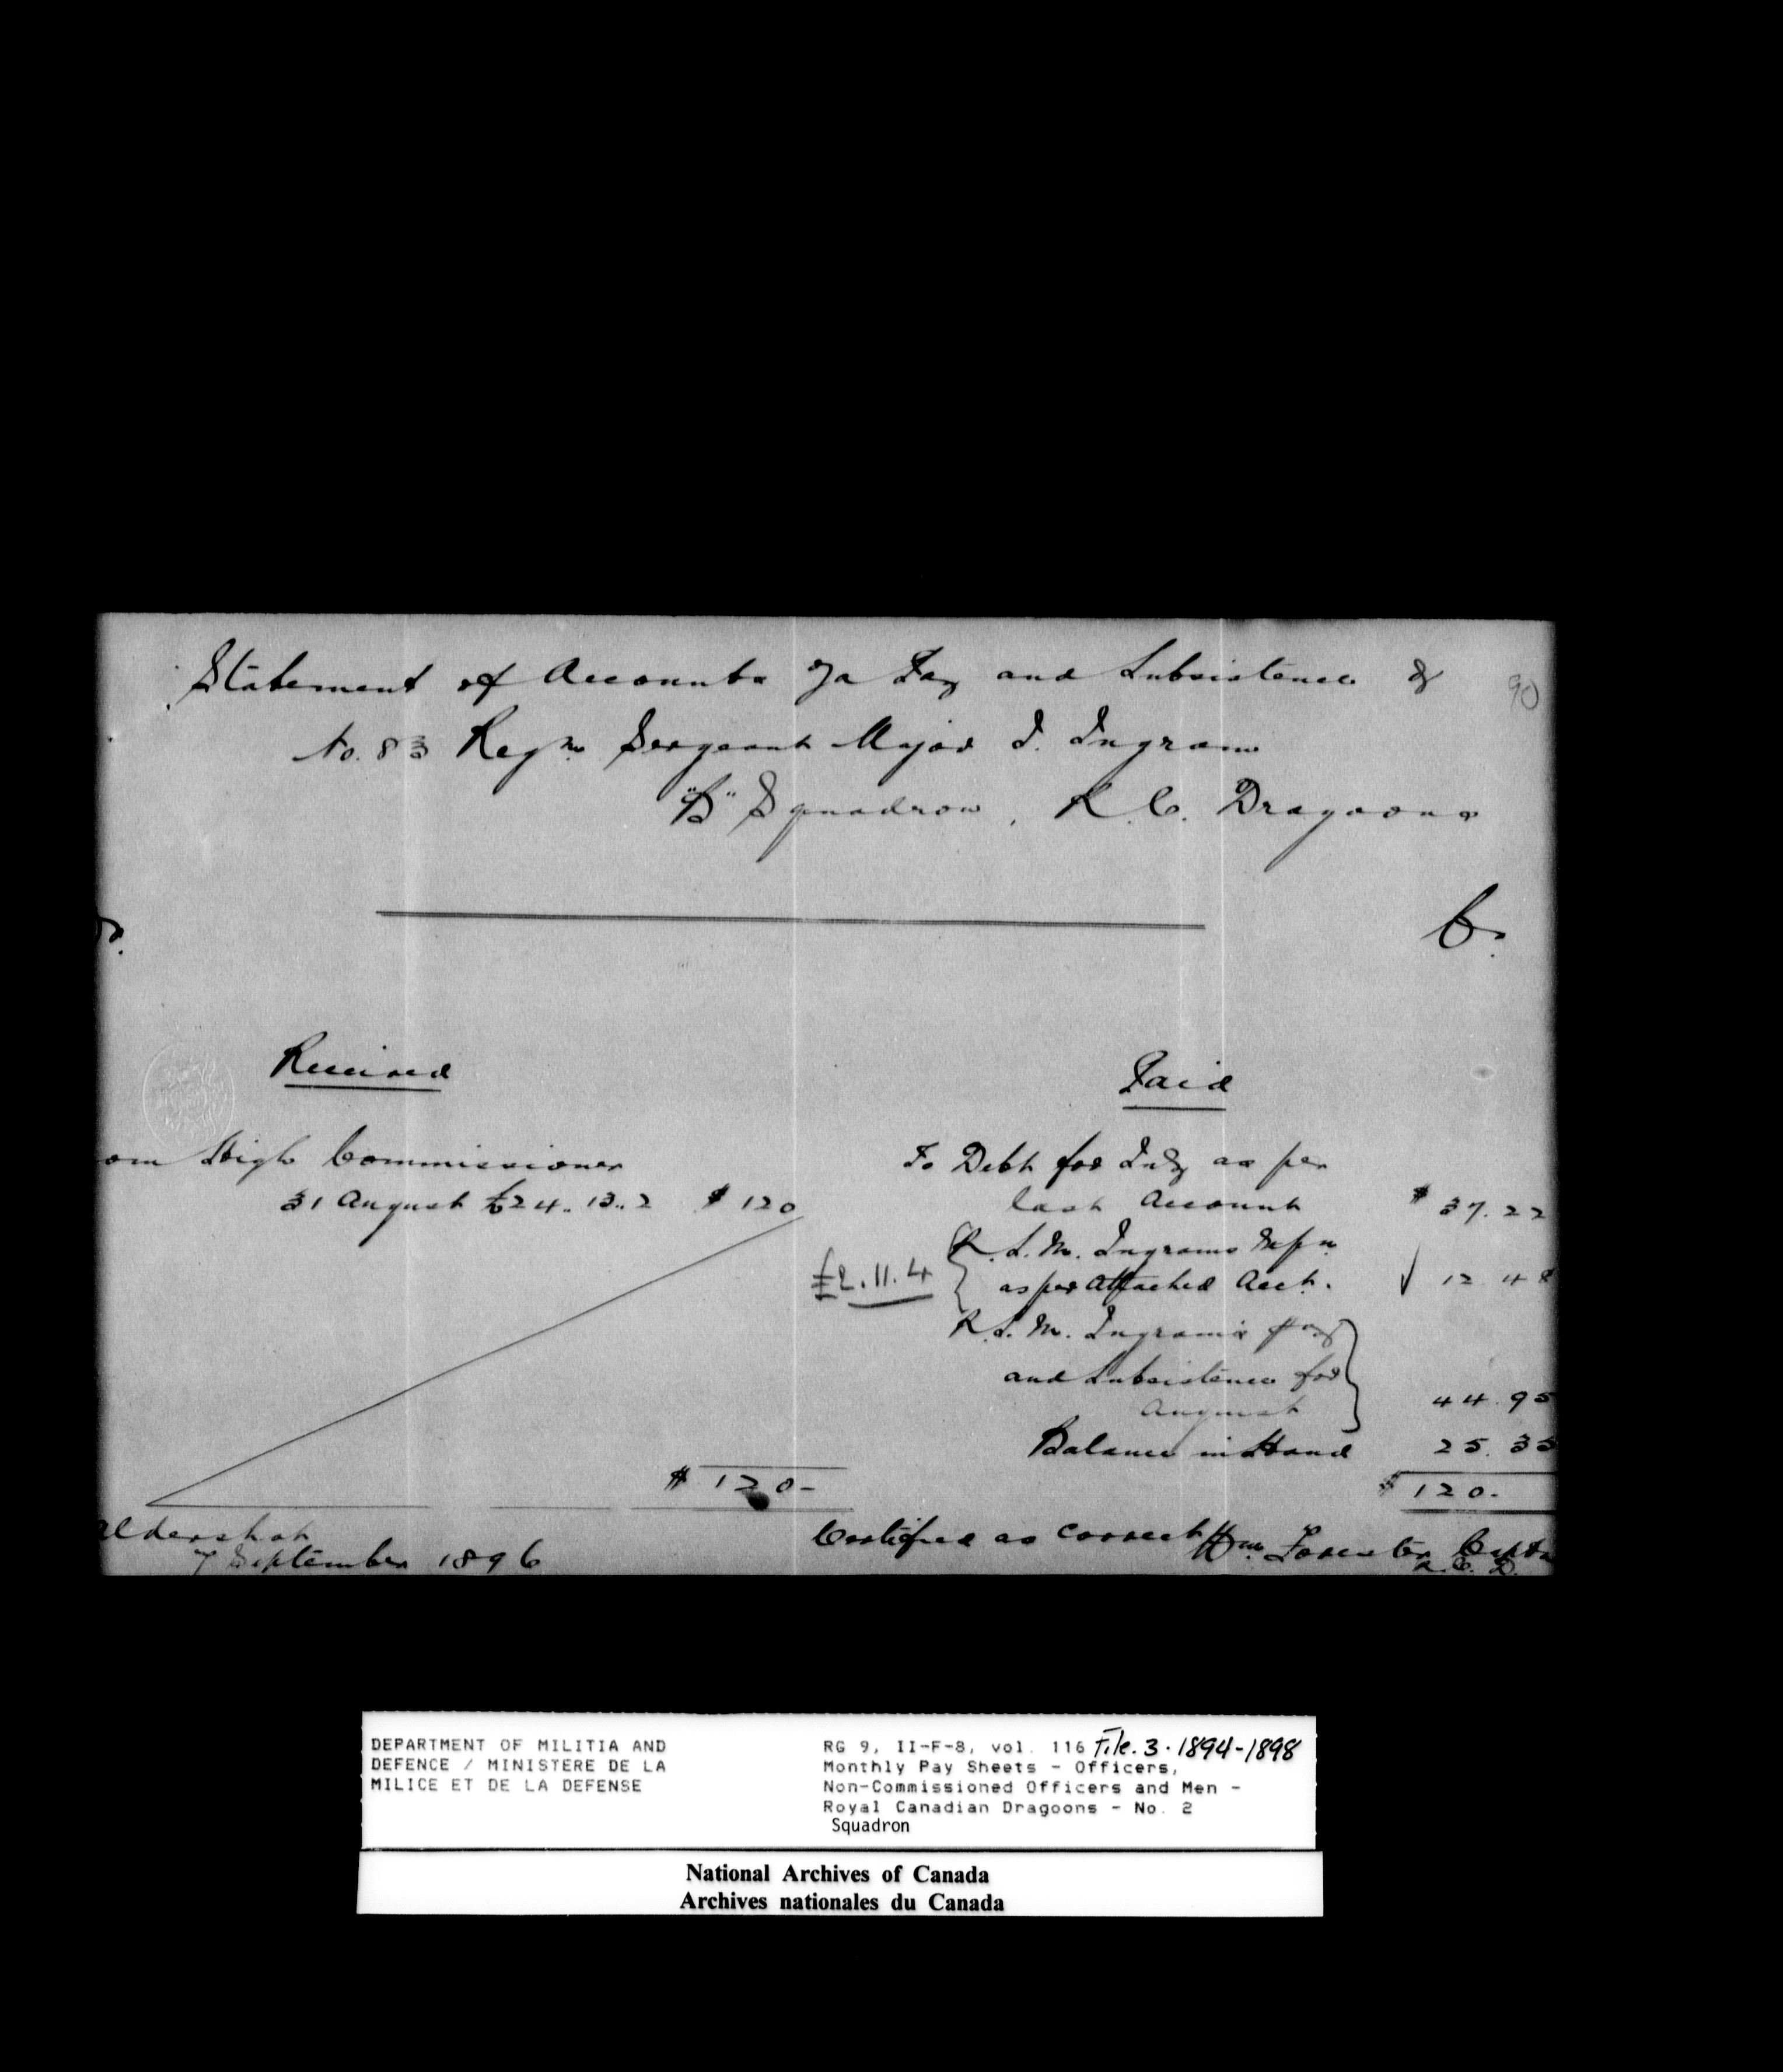 Statement of Accounts Pay and Subsistence of
90
No. 83 Reg. Sergeant Major J. Ingram
"B" Squadron, R. C. Dragoons
Received
Paid
om High Commissioner
31 August £24.. 13.. 2 $ 120
To Debt for July as per
last Account $ 37.22
£2.11.4
R.S.M. Ingrams
as per attached Acct. √ 12 48
R.S.M. Ingram's pay
and Subsistence for
August 44.95
Balance in Hand 25.35
$ 120-
$ 120-
Aldershot
7 September 1896
Certified as correct Wm. Forester Capt.
R.C.D.
DEPARTMENT OF MILITIA AND
DEFENCE / MINISTERE DE LA
MILICE ET DE LA DEFENSE
RG 9, II-F-8, vol. 116 File. 3. 1894-1898
Monthly Pay Sheets - Officers,
Non-Commissioned Officers and Men -
Royal Canadian Dragoons - No. 2
Squadron
National Archives of Canada
Archives nationales du Canada